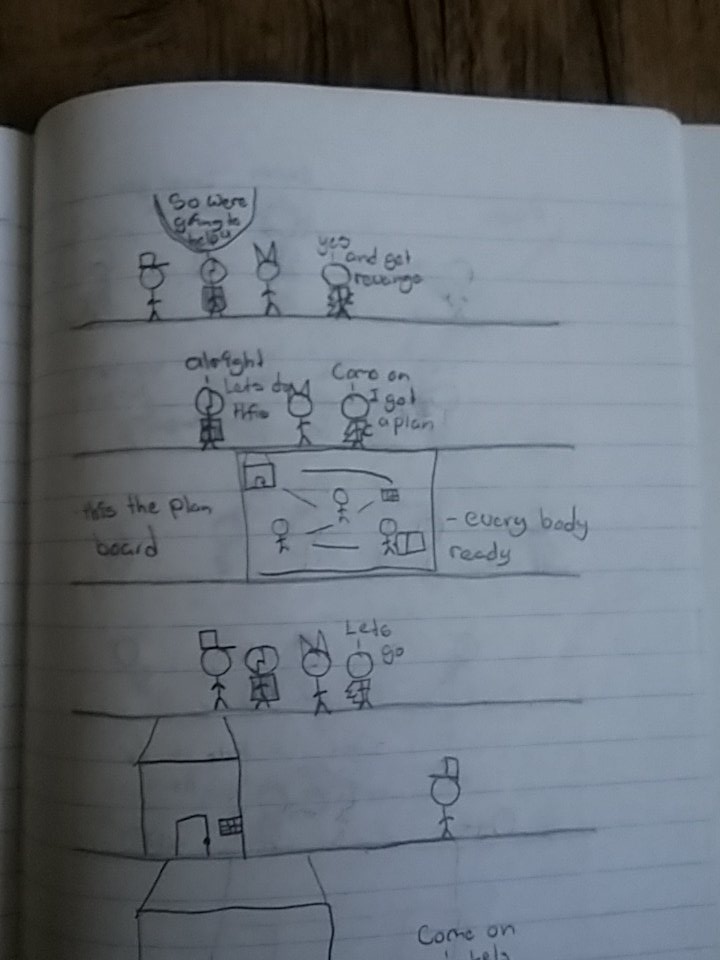 So were
going to
help u
yes
and get
revenge
alright
Lets do
this
Come on
I got
a plan
this the plan
board
- every body
ready
Lets
go
Come on